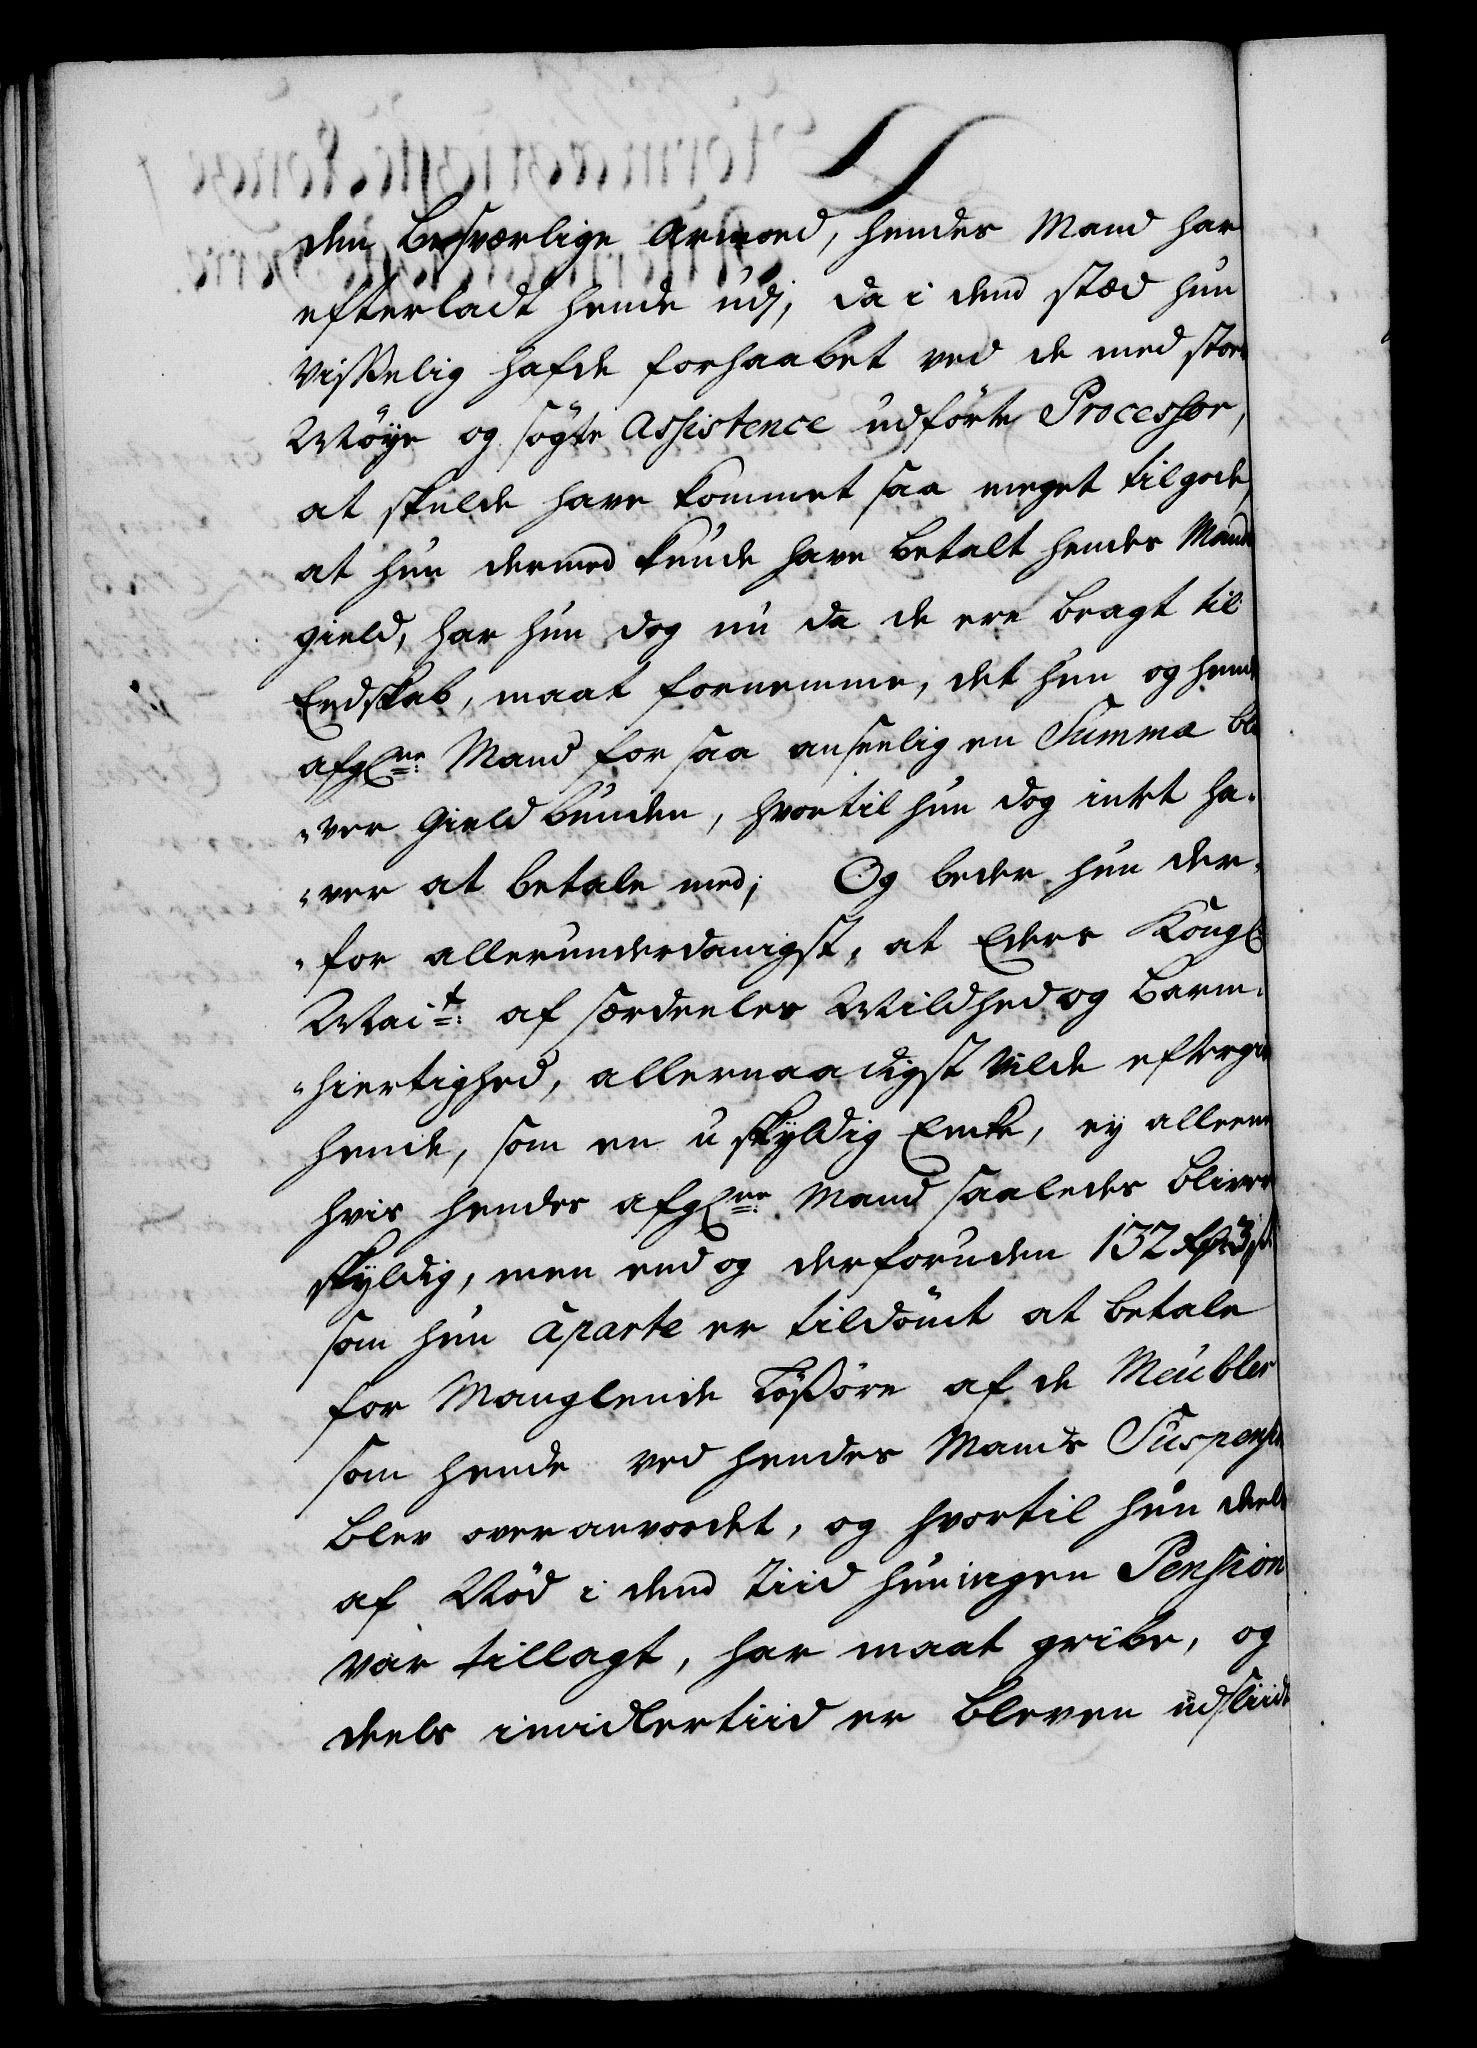 den besværlige Armoed, hendes Mand har
efterladt hende udj, da i dend stæd hun
visselig hafde forhaabet ved de med stor
Möye og sögte Assistence udförte Processer,
at skulde have kommet saa meget tilgode,
at hun dermed kunde have betalt hendes Mands
gield, har hun dog nu da de ere bragt til
Endskab, maat fornemme, det hun og hendes
afgl:ne Mand for saa anseelig en Summa bli-
ver gieldbunden, hvortil hun dog intet ha-
ver at betale med; Og beder hun der-
for allerunderdanigst, at Eders Kongl:
Mai:t af særdeeles Mildhed og barm-
hiertighed, allernaadigst vilde eftergive
hende, som en uskyldig Encke, ey alleene
hvis hendes afgl:ne Mand saaledes bliver
skyldig, men end og derforuden 132 Rdr 3 s
som hun aparte er tildömt at betale
for Manglende Lösöre af de Meubler
som hende ved hendes Mands Suspension
blev overanvordet, og hvortil hun deels
af Nöd i dend Tiid hun ingen Pension
var tillagt, har maat gribe, og
deels imidlertiid er bleven udsliidt